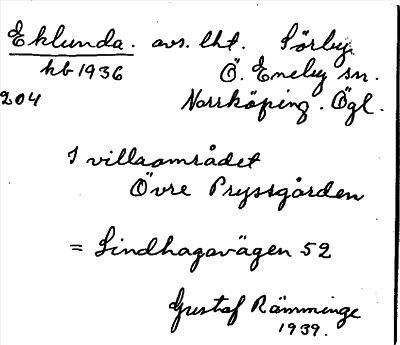 Eklunda. avs. lht. Sörby
kb 1936 Ö. Eneby sn.
204 Norrköping. Ögl.
I villaområdet
Övre Pryssgården
= Lindhagavägen 52
Gustaf Rämminge
1939.